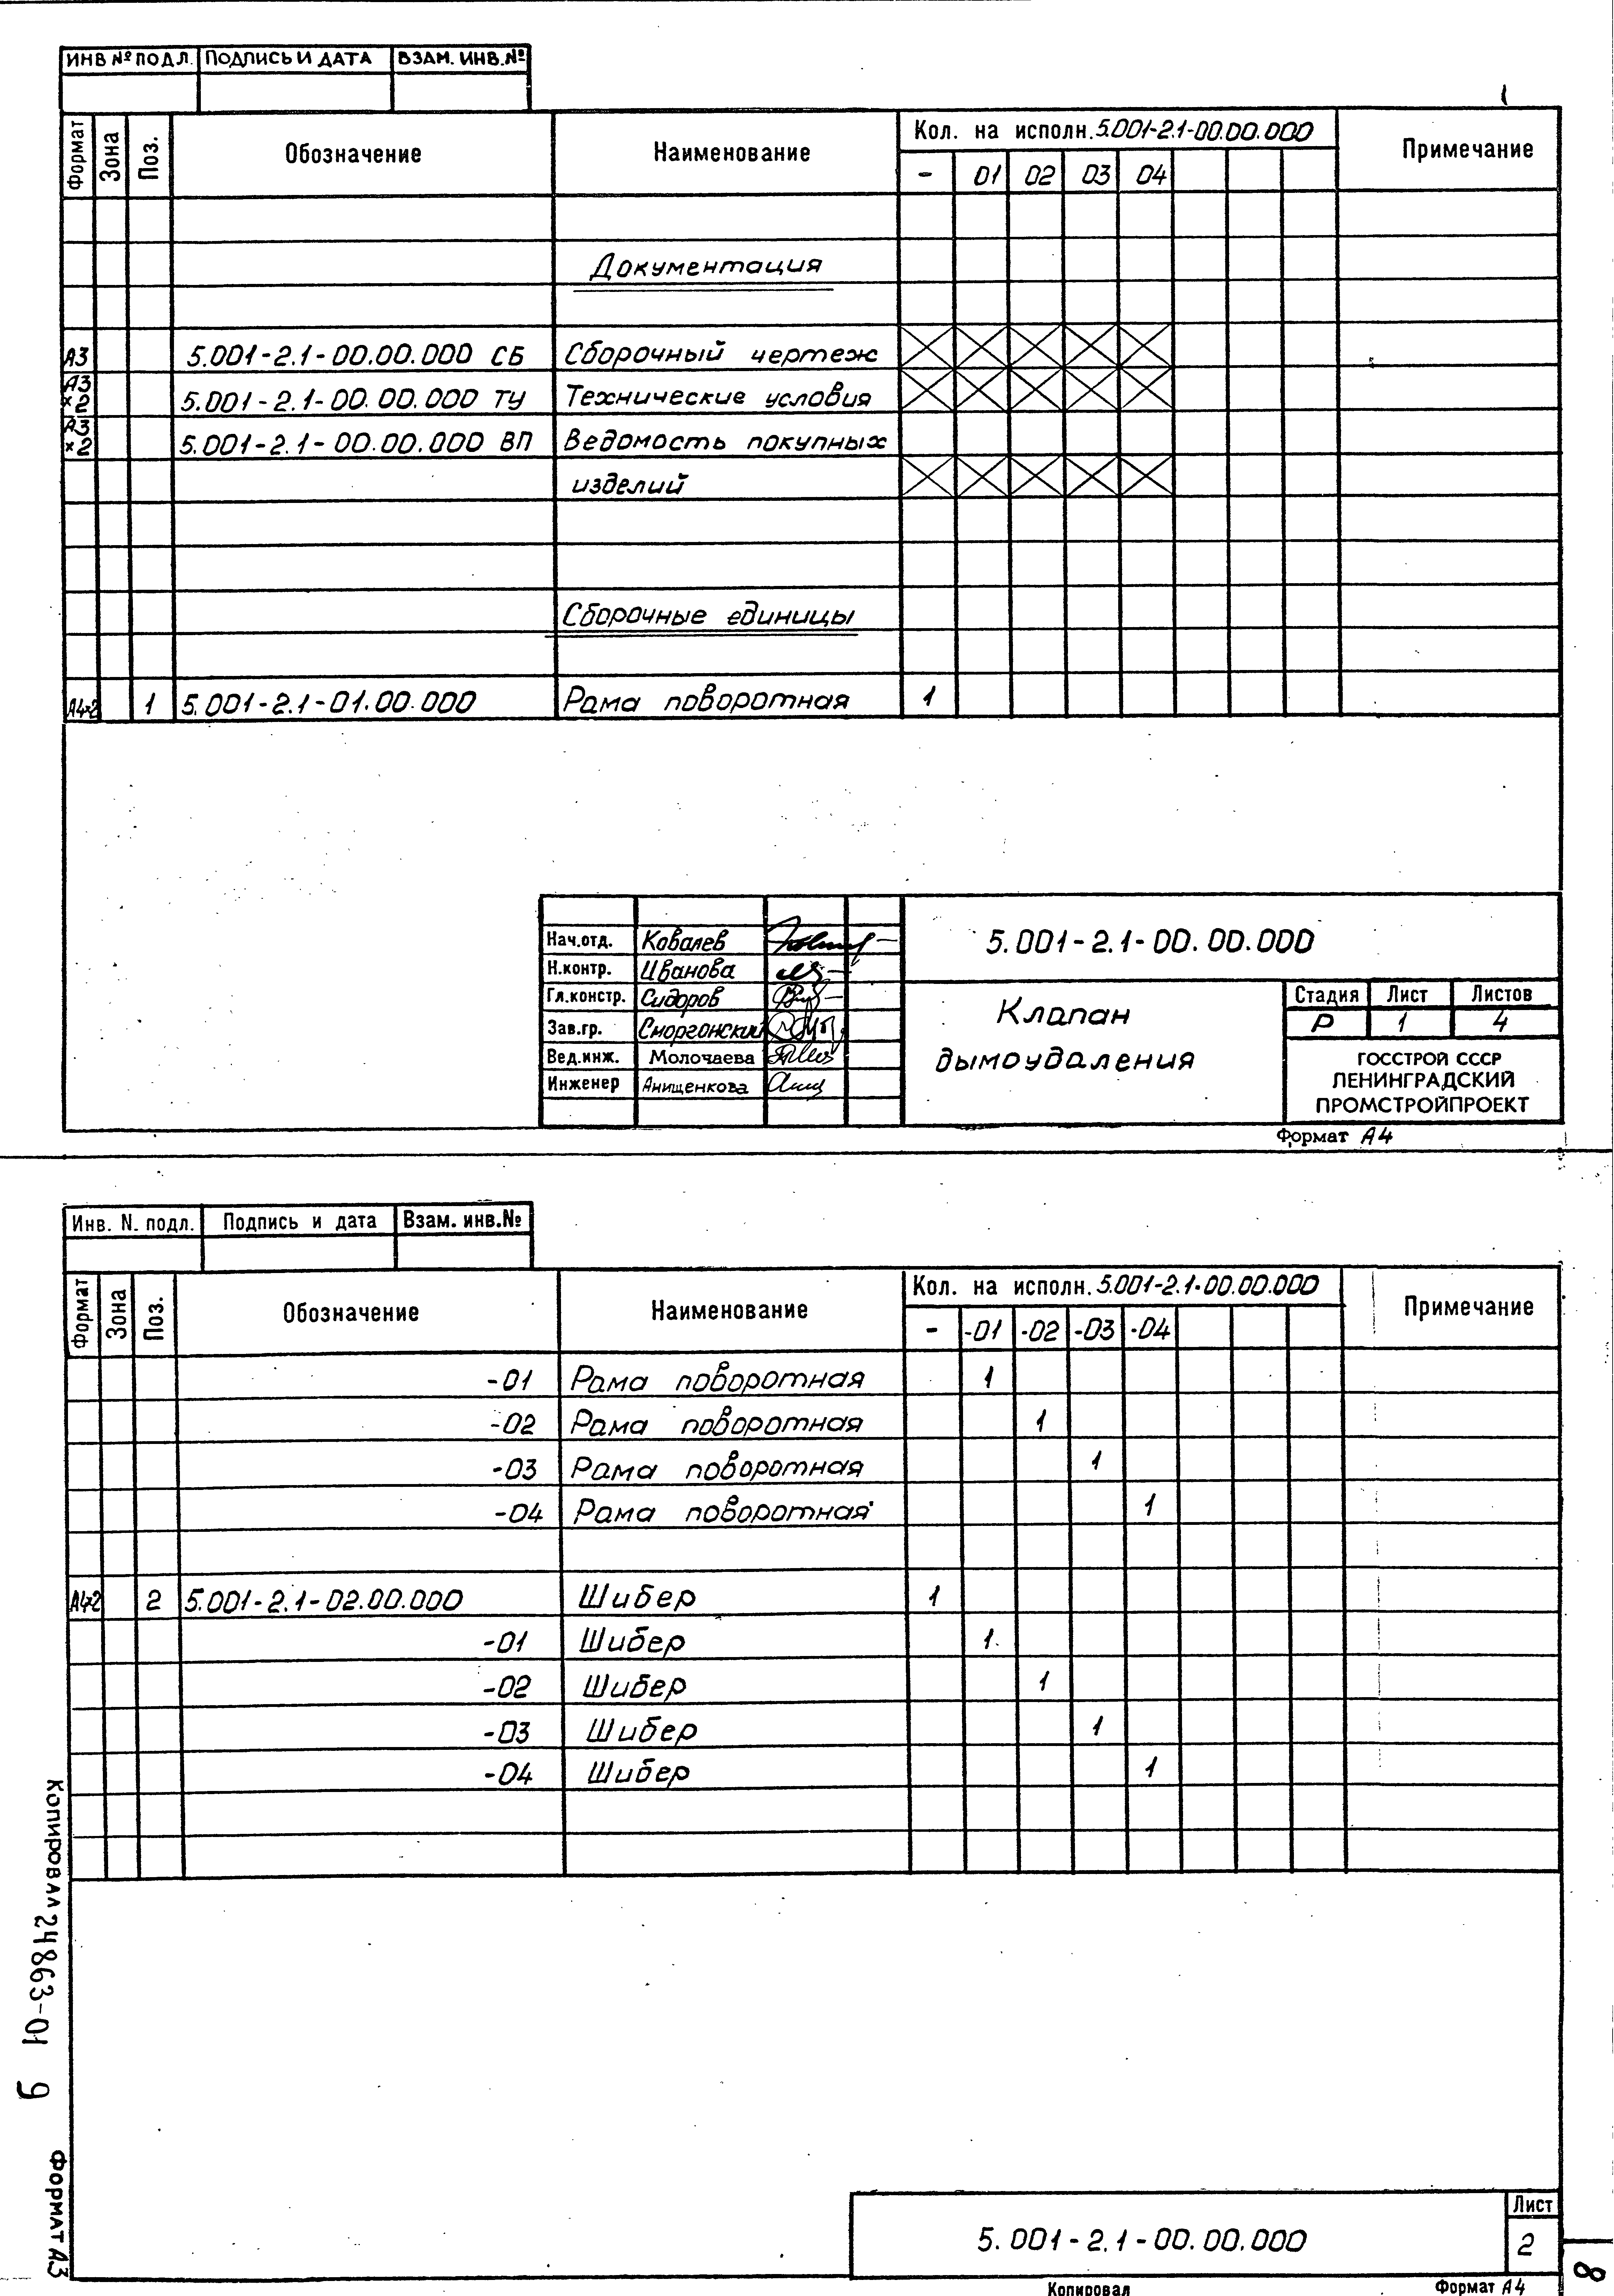 ИНВ № ПОДЛ. ПОДПИСЬ И ДАТА ВЗАМ. ИНВ. №
1
Формат Зона Поз. Обозначение Наименование Кол. на исполн. 5.001-2.1-00.00.000 Примечание
- 01 02 03 04
Документация
А3 5.001-2.1-00.00.000 СБ Сборочный чертеж
А3 ×2 5.001-2.1-00.00.000 ТУ Технические условия
А3 ×2 5.001-2.1-00.00.000 ВП Ведомость покупных
изделий
Сборочные единицы
А4×2 1 5.001-2.1-01.00.000 Рама поворотная 1
Нач.отд. Ковалев
Н.контр. Иванова
Гл.констр. Сидоров
Зав.гр. Сморгонский
Вед.инж. Молочаева
Инженер Анищенкова
5.001-2.1-00.00.000
Клапан
дымоудаления
Стадия Лист Листов
Р 1 4
ГОССТРОЙ СССР
ЛЕНИНГРАДСКИЙ
ПРОМСТРОЙПРОЕКТ
Формат А4
Инв. N. подл. Подпись и дата Взам. инв.№
Формат Зона Поз. Обозначение Наименование Кол. на исполн. 5.001-2.1-00.00.000 Примечание
- -01 -02 -03 -04
-01 Рама поворотная 1
-02 Рама поворотная 1
-03 Рама поворотная 1
-04 Рама поворотная 1
А4×2 2 5.001-2.1-02.00.000 Шибер 1
-01 Шибер 1
-02 Шибер 1
-03 Шибер 1
-04 Шибер 1
Копировал 24863-01 9 Формат А3
5.001-2.1-00.00.000
Лист
2
Копировал Формат А4
8